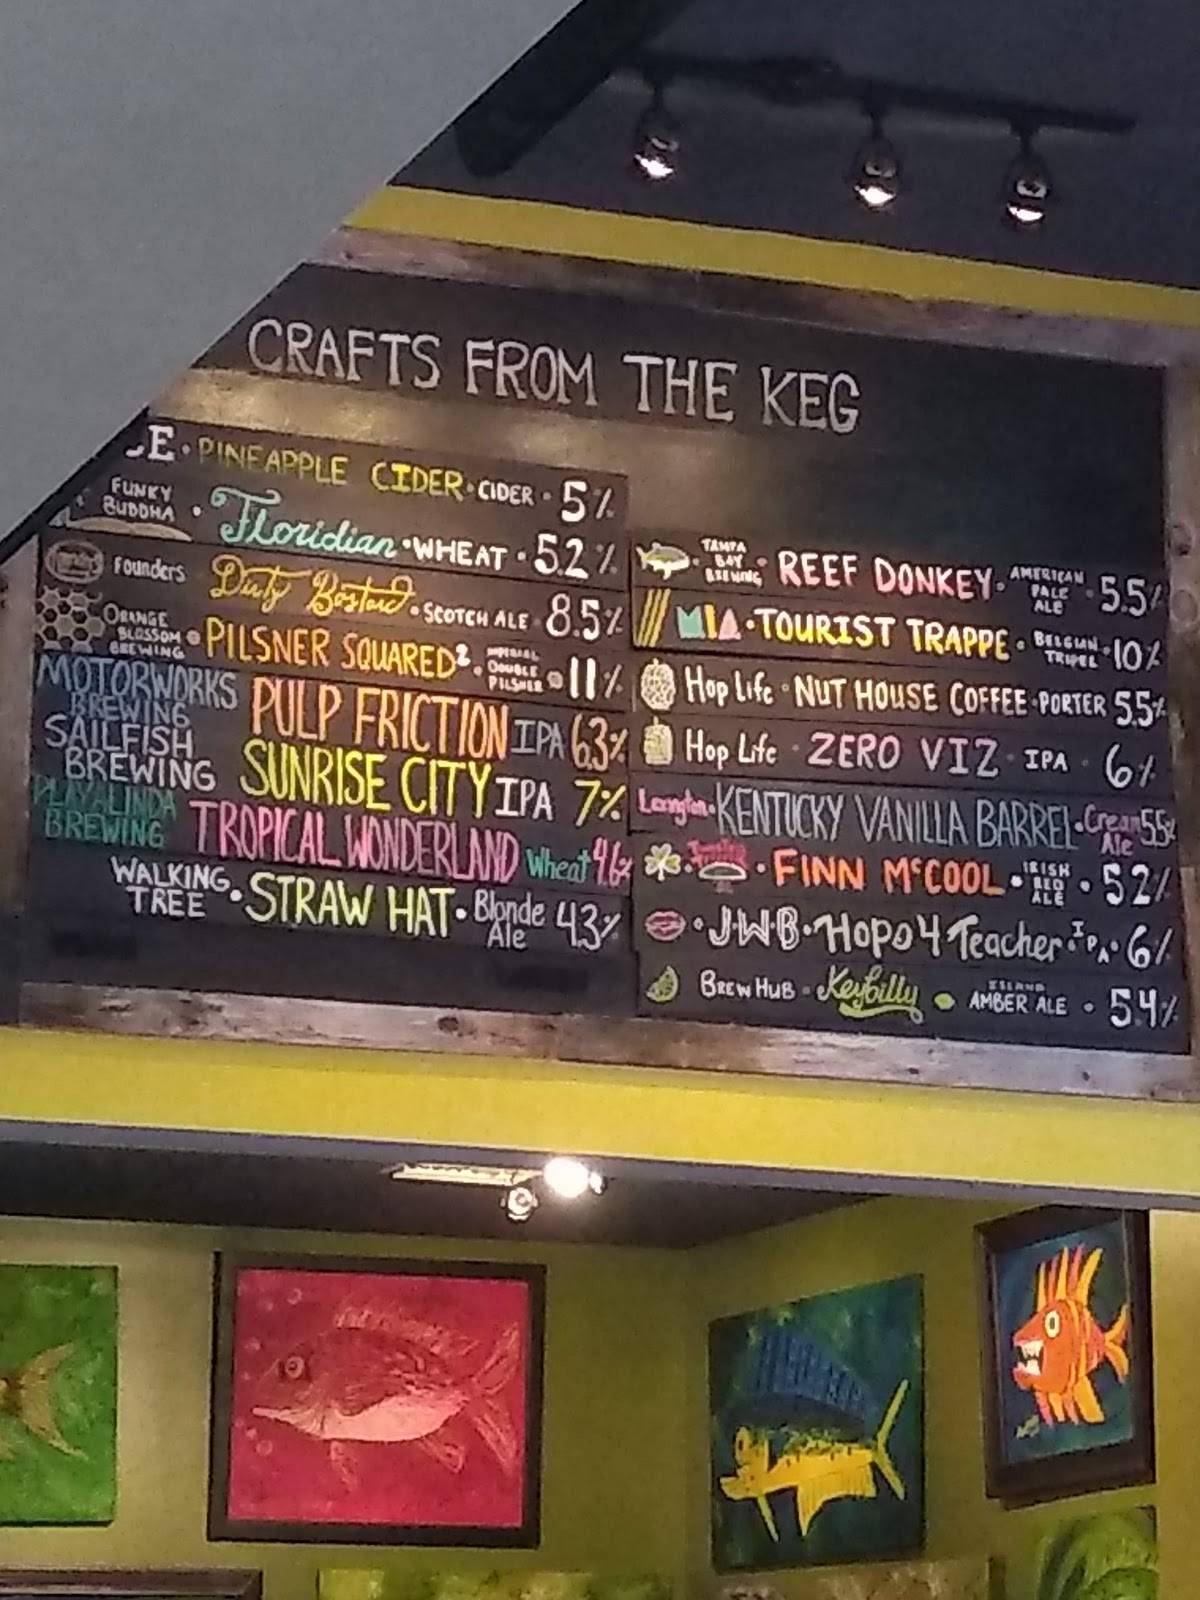 CRAFTS FROM THE KEG
E · PINEAPPLE CIDER · CIDER · 5%
FUNKY BUDDHA · Floridian · WHEAT · 5.2%
Founders Dirty Bastard · SCOTCH ALE · 8.5%
ORANGE BLOSSOM BREWING PILSNER SQUARED² · IMPERIAL DOUBLE PILSNER 11%
MOTORWORKS BREWING PULP FRICTION IPA 6.3%
SAILFISH BREWING SUNRISE CITY IPA 7%
PLAYALINDA BREWING TROPICAL WONDERLAND Wheat 4.6%
WALKING TREE · STRAW HAT · Blonde Ale 4.3%
TAMPA BAY BREWING · REEF DONKEY · AMERICAN PALE ALE · 5.5%
MIA · TOURIST TRAPPE · BELGIAN TRIPEL · 10%
Hop Life · NUT HOUSE COFFEE · PORTER 5.5%
Hop Life · ZERO VIZ · IPA · 6%
Lexington · KENTUCKY VANILLA BARREL · Cream Ale 5.5%
· FINN McCOOL · IRISH RED ALE · 5.2%
· J·W·B · Hops 4 Teacher · IPA · 6%
BREW HUB · Keybilly ISLAND AMBER ALE · 5.4%